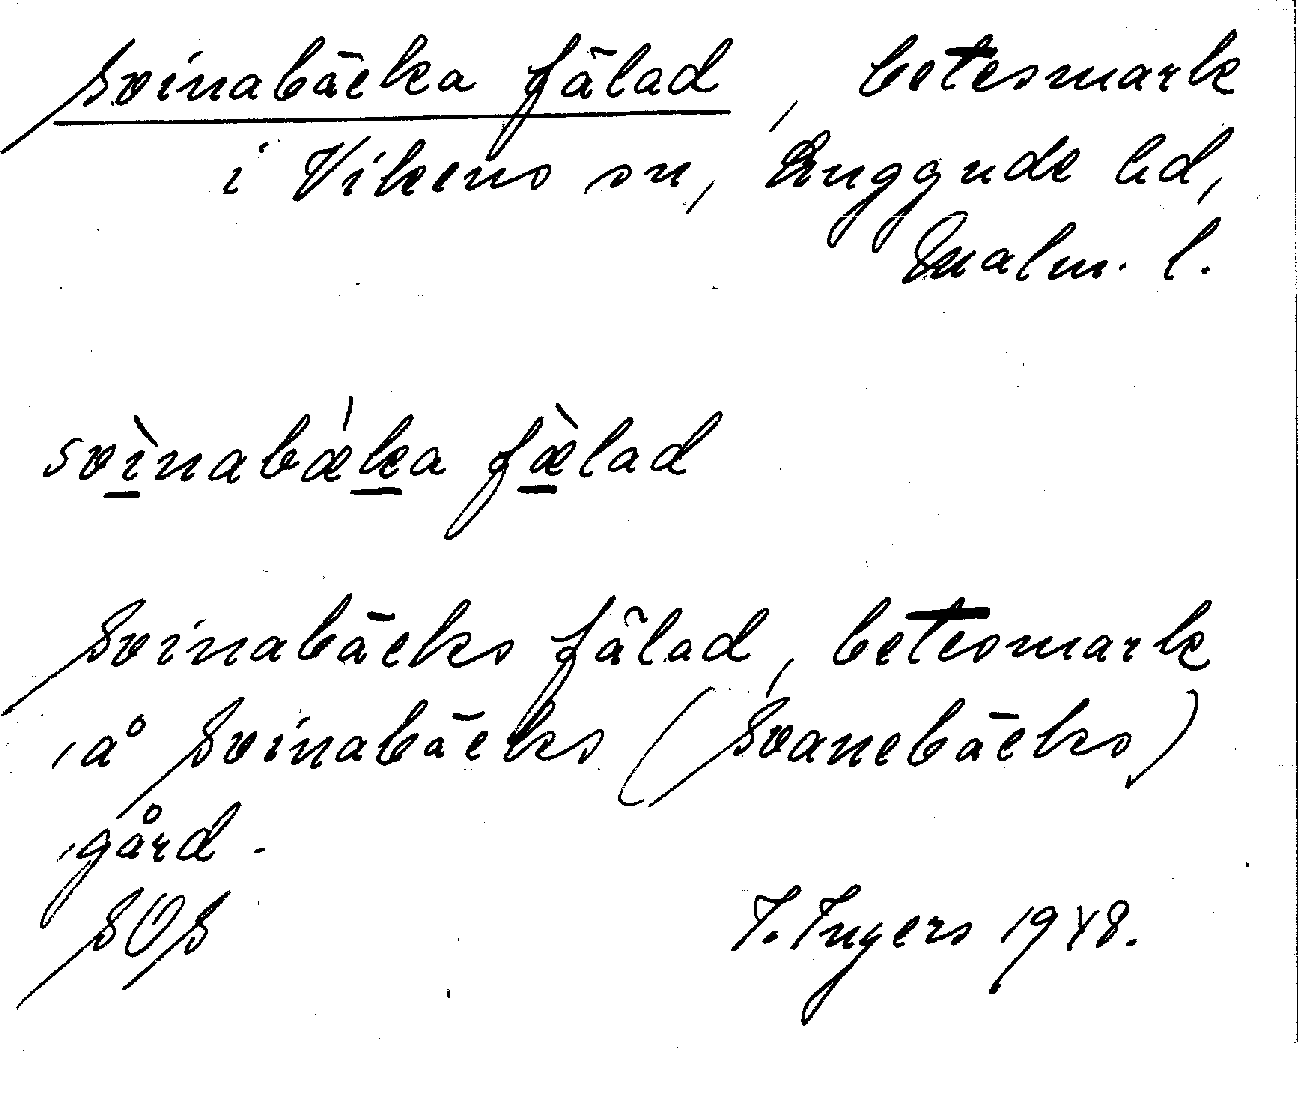 Svinabäcka fälad, betesmark
i Vikens sn, Luggude hd,
Malm. l.
svìnabǽka fæ̀lad
Svinabäcks fälad, betesmark
å Svinabäcks (Svanebäcks)
gård.
SOS I. Ingers 1948.